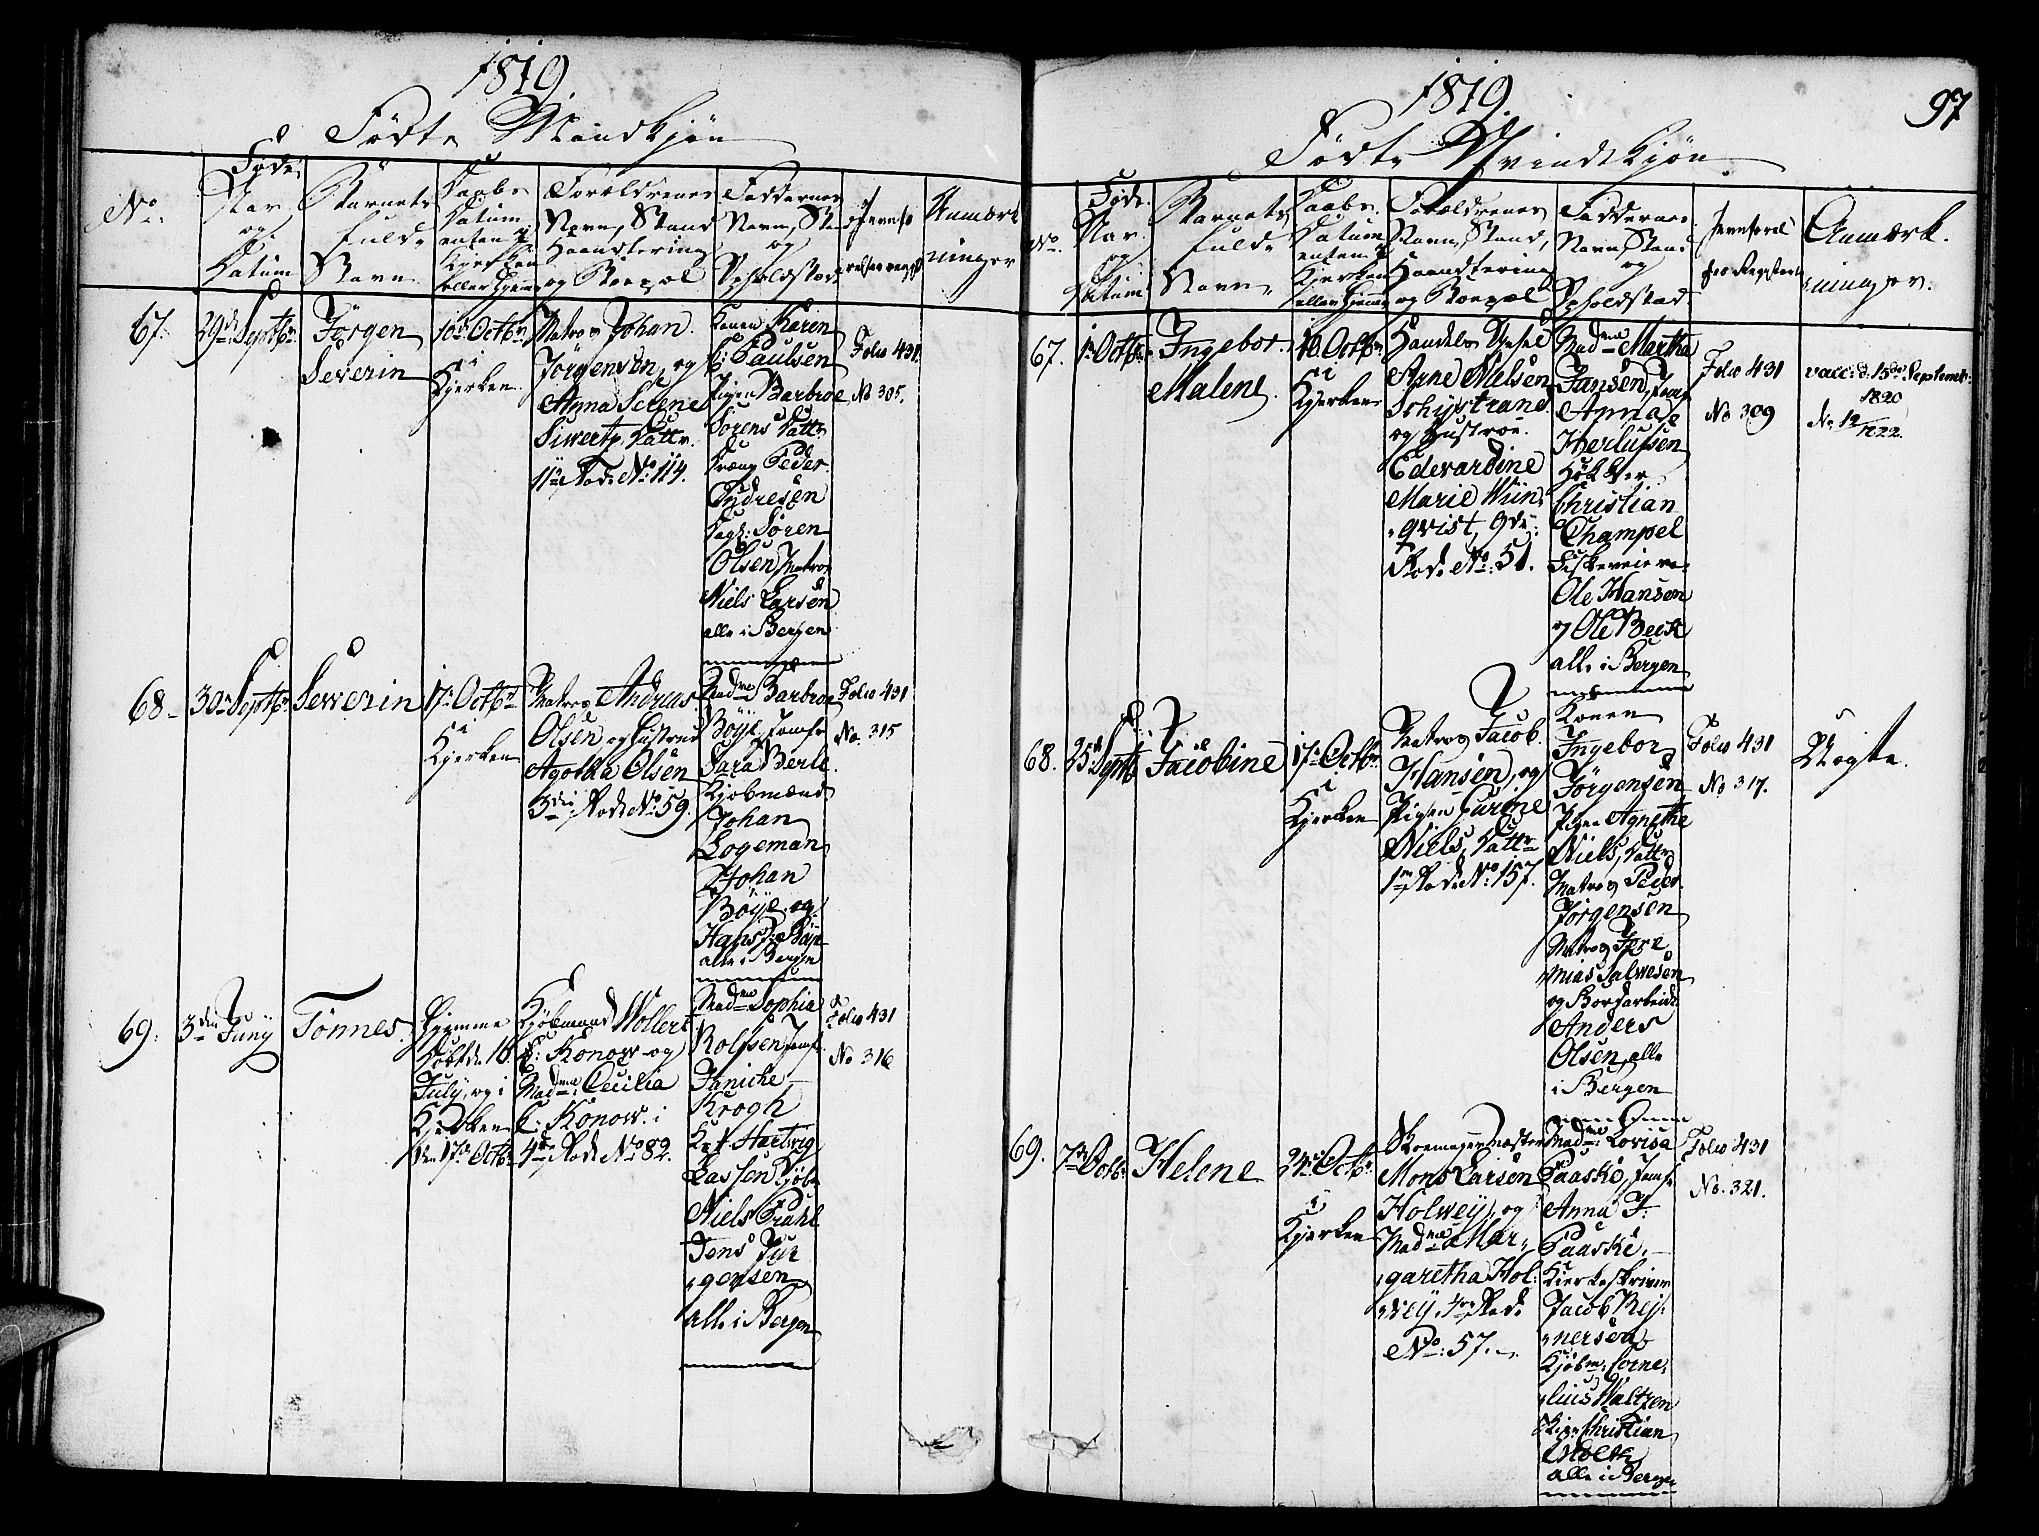 1819.
Födte Mandkjön
No.
Föds
Aar
og
Datum
Barnets
fulde
Navn
Daabs
Datum
enten i
Kjerken
eller Hjeme
Forældrenes
Navn, Stand
Haandtering
og Boepæl
Faddernes
Navn, Stand
og
Opholdstæd
Anmærk
ninger
67.
29de Septbr.
Jörgen
Severin
10de Octbr.
i
Kjerken
Matros Johan
Jörgensen, og
Anna Serene
Siwerts Dattr.
11te Rode No. 114.
Konen Karin
Paulsen
Pigen Barbroe
Sörens Dattr.
Peder
Endresen
Sören
Olsen, Matros
Niels Larsen
alle i Bergen
Folio 431
No 305.
68
30te Septbr.
Sewerin
17de Octbr.
i
Kjerken
Matros Andreas
Olsen og Hustrue
Agotha Olsen
3die Rode No. 59.
Madme Barbroe
Böye, Jomfr
Sara Berle
Kjöbmænd
Johan
Logeman
Johan
Böye, og
Hans J: Böye
alle i Bergen
Folio 431
No. 315
69.
3die Juny
Tönnes.
Hjemme
döbt de 16
July, og i
Kjerken
den 17de Octbr.
Kjöbmand Wollert
C: Konow og
Madme Cecilia
C. Konow. i
4de Rode No. 82.
Madme Sophia
Rolfsen Jomfr
Janiche
Krogh
Kapt. Hartvig
Lassen Kjöbm
Niels Prahl
Jens Jür
gensen
alle i Bergen
Folio 431
No 316
1819.
97
Födte Qvindekjön
No.
Föds
Aar
og
Datum
Barnets
fulde
Navn
Daabs
Datum
enten i
Kjerken
eller Hjeme
Forældrenes
Navn, Stand,
Haandtering
og Boepæl
Faddernes
Navn, Stand
og
Opholdstad.
Anmærk.
ninger.
67.
1te Octbr.
Ingebor
Malene.
10. Octbr.
i
Kjerken
Arne Nielsen
Schjystrand
og Hustroe
Edevardine
Marie Wiin
qvist, 9de
Rode No. 51.
Madme Martha
Jansen, Jomfr
Anna
Herlufsen
Christian
Champel
Ole Hansen
og Ole Beck
alle i Bergen
Folio 431
No 309
vacc: d. 15de September
1820
No 12/1822.
68.
25de Septb
Jacobine
17de Octbr.
i
Kjerken
Matros Jacob
Hansen, og
Pigen Gurine
Niels Dattr
1te Rode No. 157.
Konen
Ingebor
Jörgensen
Pigen Agnethe
Niels Dattr
Matros Peder
Jörgensen
Matros Jere
mias Salwesen
og Bordarbeider
Anders
Olsen, alle
i Bergen
Folio 431
No 317.
Uægte.
69.
7de Octbr.
Helene
24de Octbr.
i
Kjerken
Skoemagermæster
Mons Larsen
Holwey, og
Madme Mar
garetha Hol
wey, Rode
No. 57.
Madme Lovisa
Paaske, Jomfr
Anna J:
Paaske.
Kierkeskriver
Jacob Rej
nersen
Kjöbm: Corne
lius Waltzen
Christian
Holck
alle i Bergen
Folio 431
No. 321.